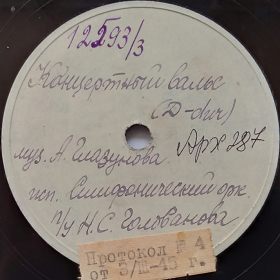 12593/3
Концертный вальс
(D-dur)
муз. А. Глазунова. Арх 287
исп. Симфонический орк.
п/у Н.С. Голованова
Протокол № 4
от 5/III-45 г.